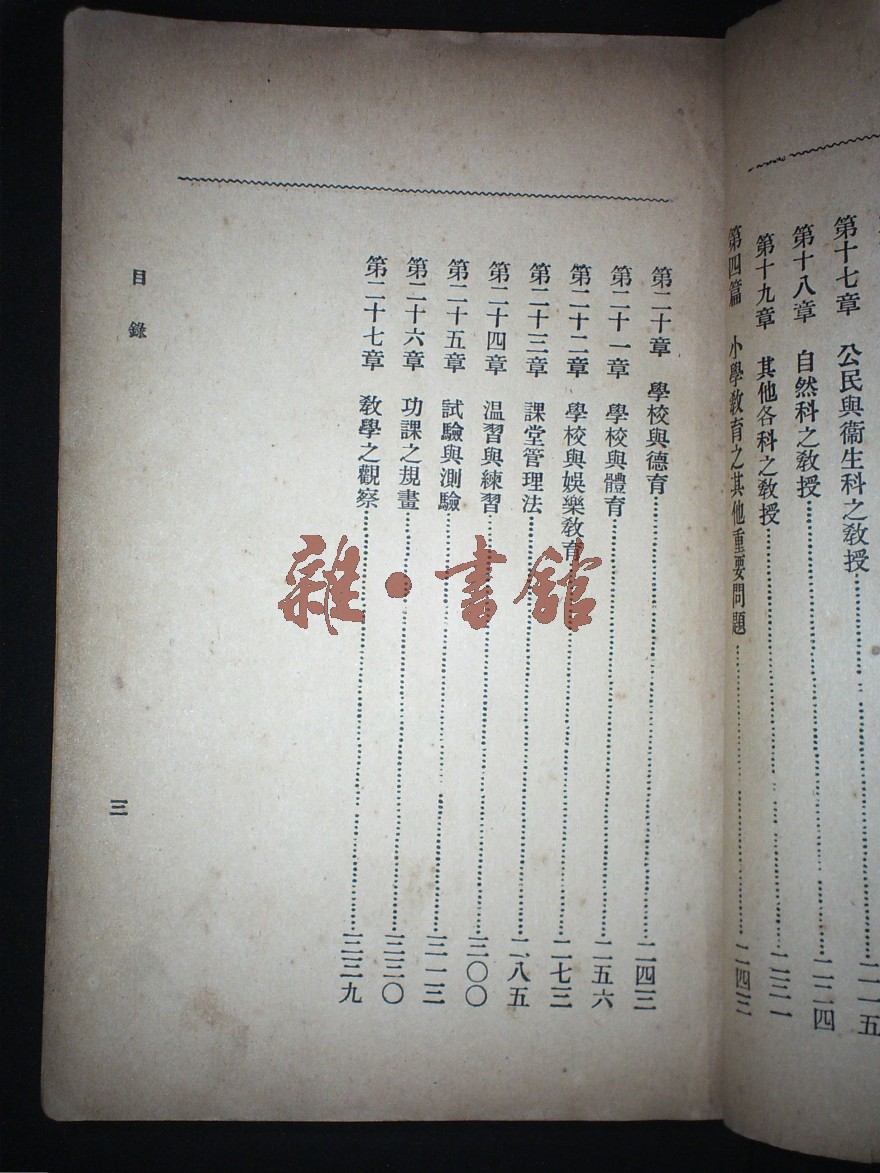 第十七章　公民與衞生科之敎授……二一五
第十八章　自然科之敎授……二二四
第十九章　其他各科之敎授……二三一
第四篇　小學敎育之其他重要問題……二四三
第二十章　學校與德育……二四三
第二十一章　學校與體育……二五六
第二十二章　學校與娛樂敎育……二七三
第二十三章　課堂管理法……二八五
第二十四章　温習與練習……三〇〇
第二十五章　試驗與測驗……三一三
第二十六章　功課之規畫……三三〇
第二十七章　敎學之觀察……三三九
目錄
三
雜·書館